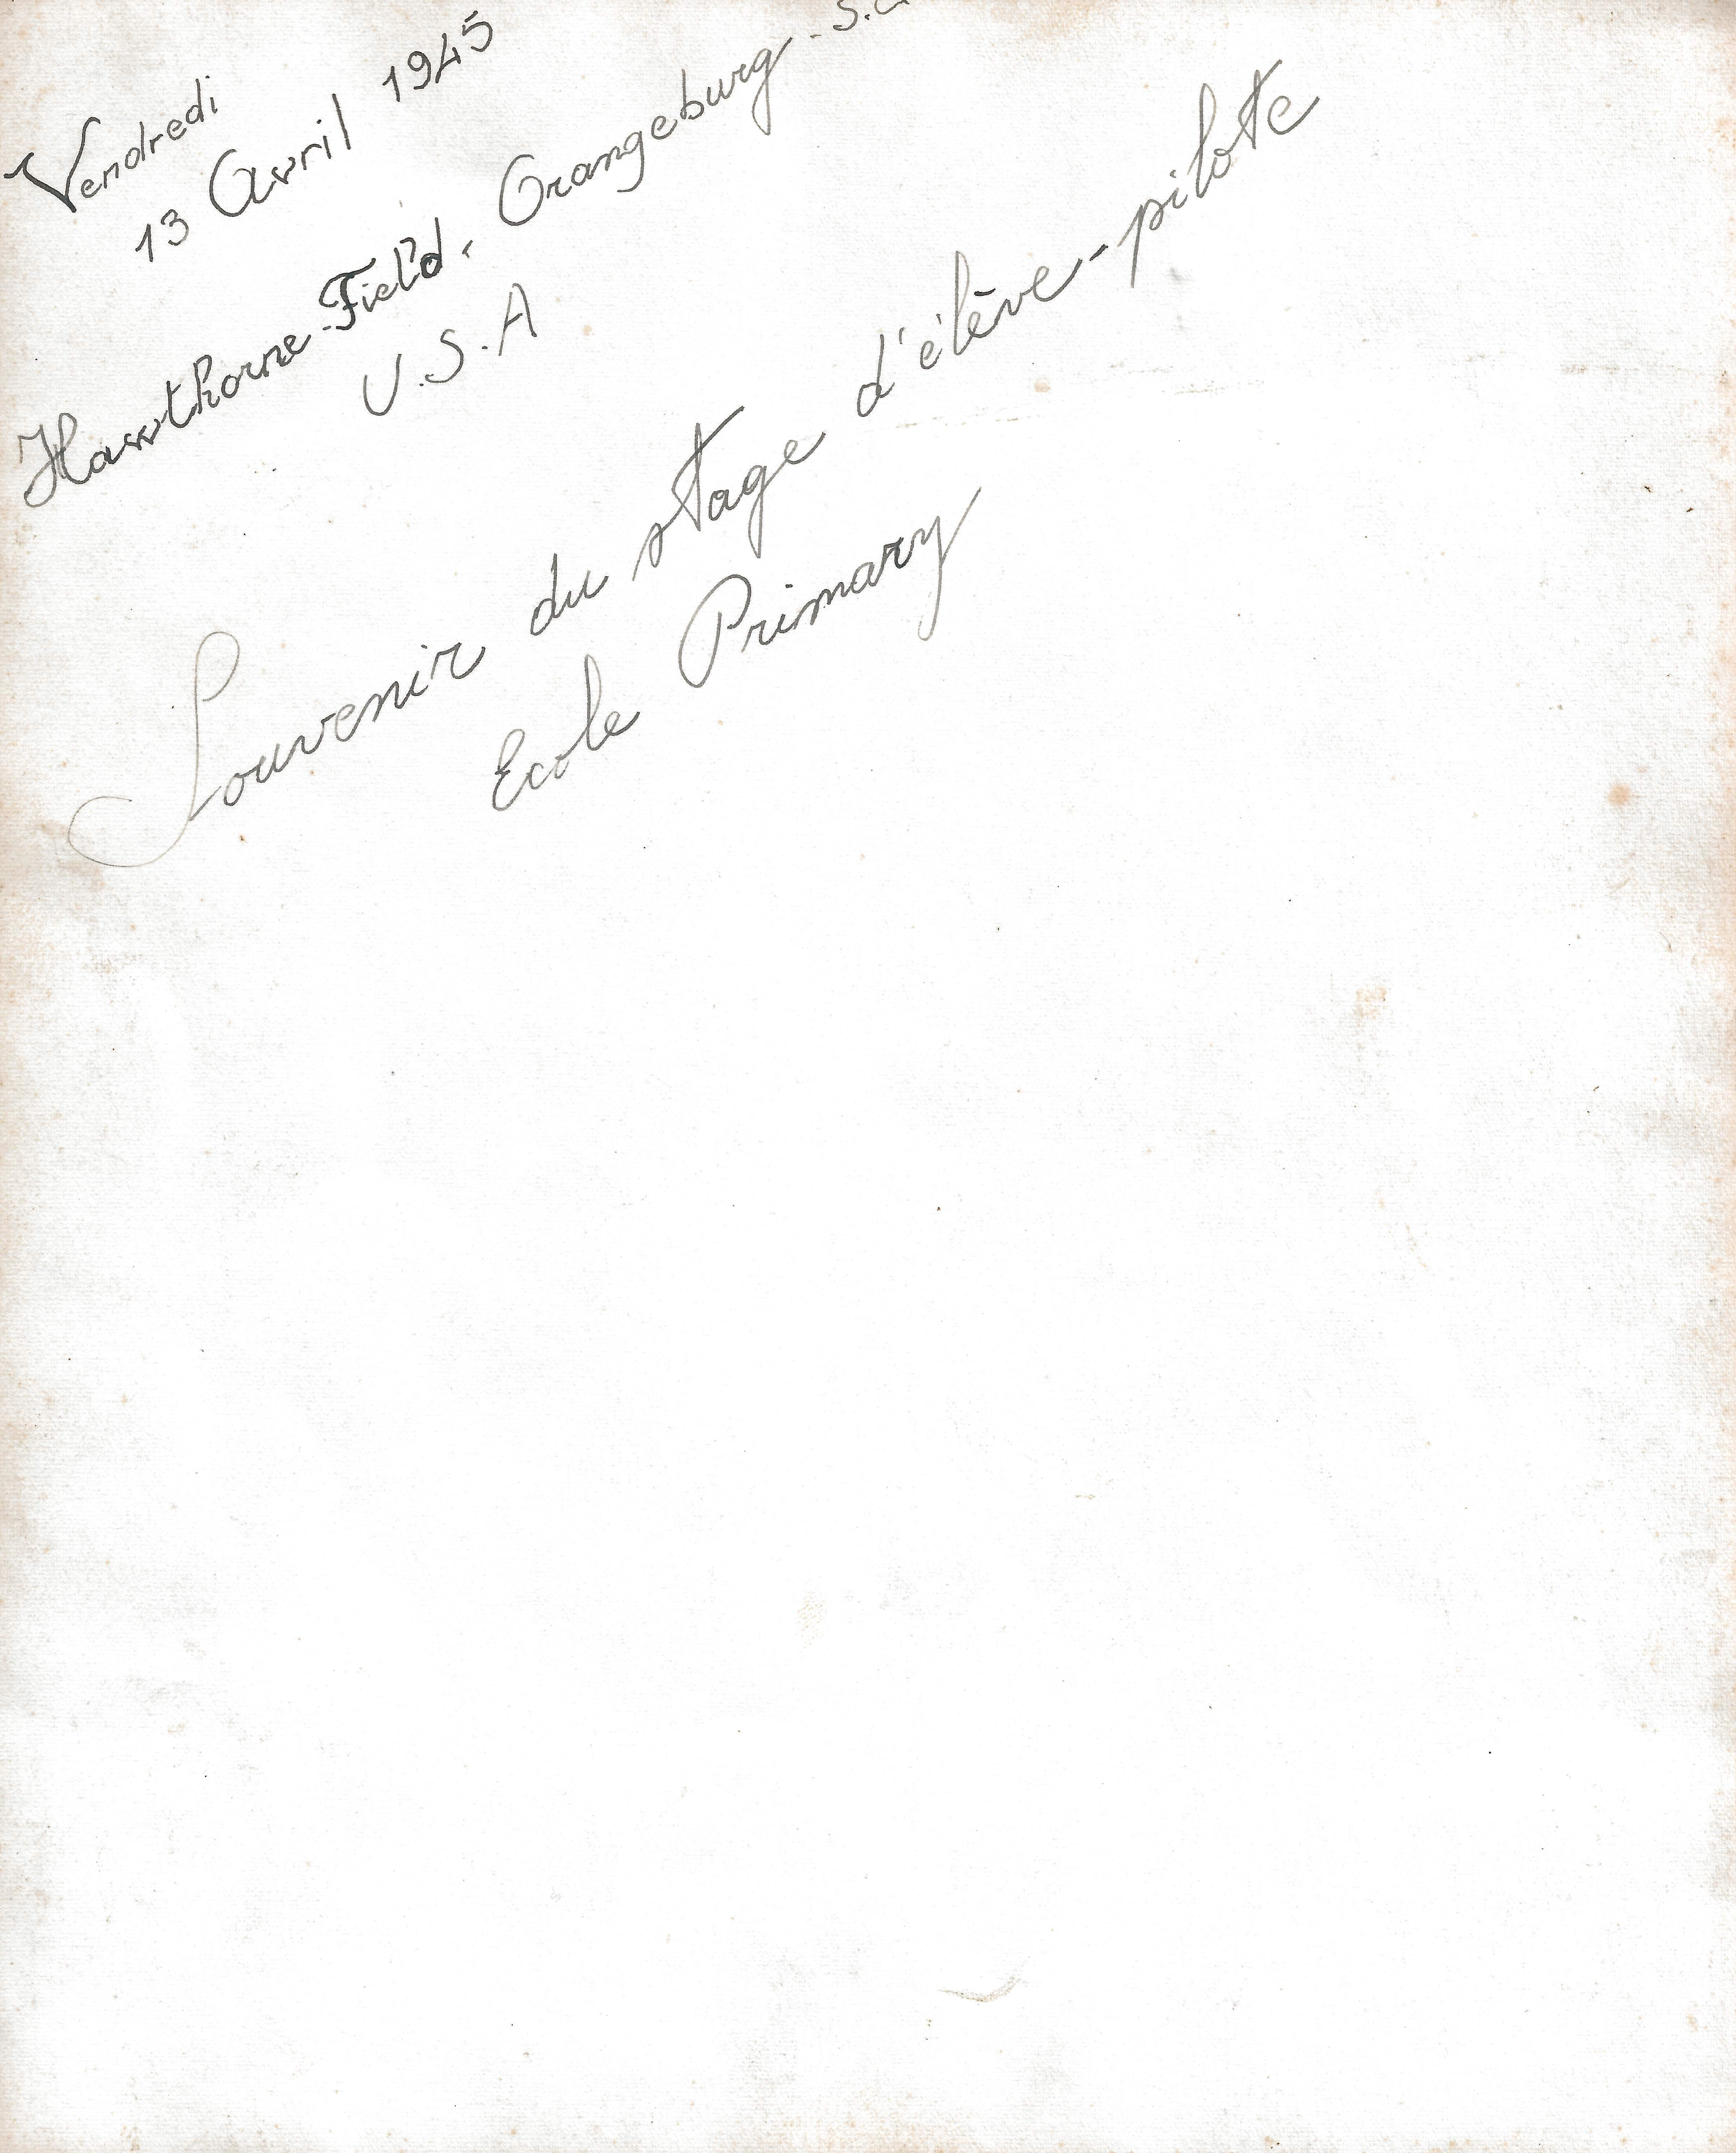 Vendredi
13 Avril 1945
Hawthorne-Field. Orangeburg. S.C
U.S.A
Souvenir du stage d'élève-pilote
Ecole Primary